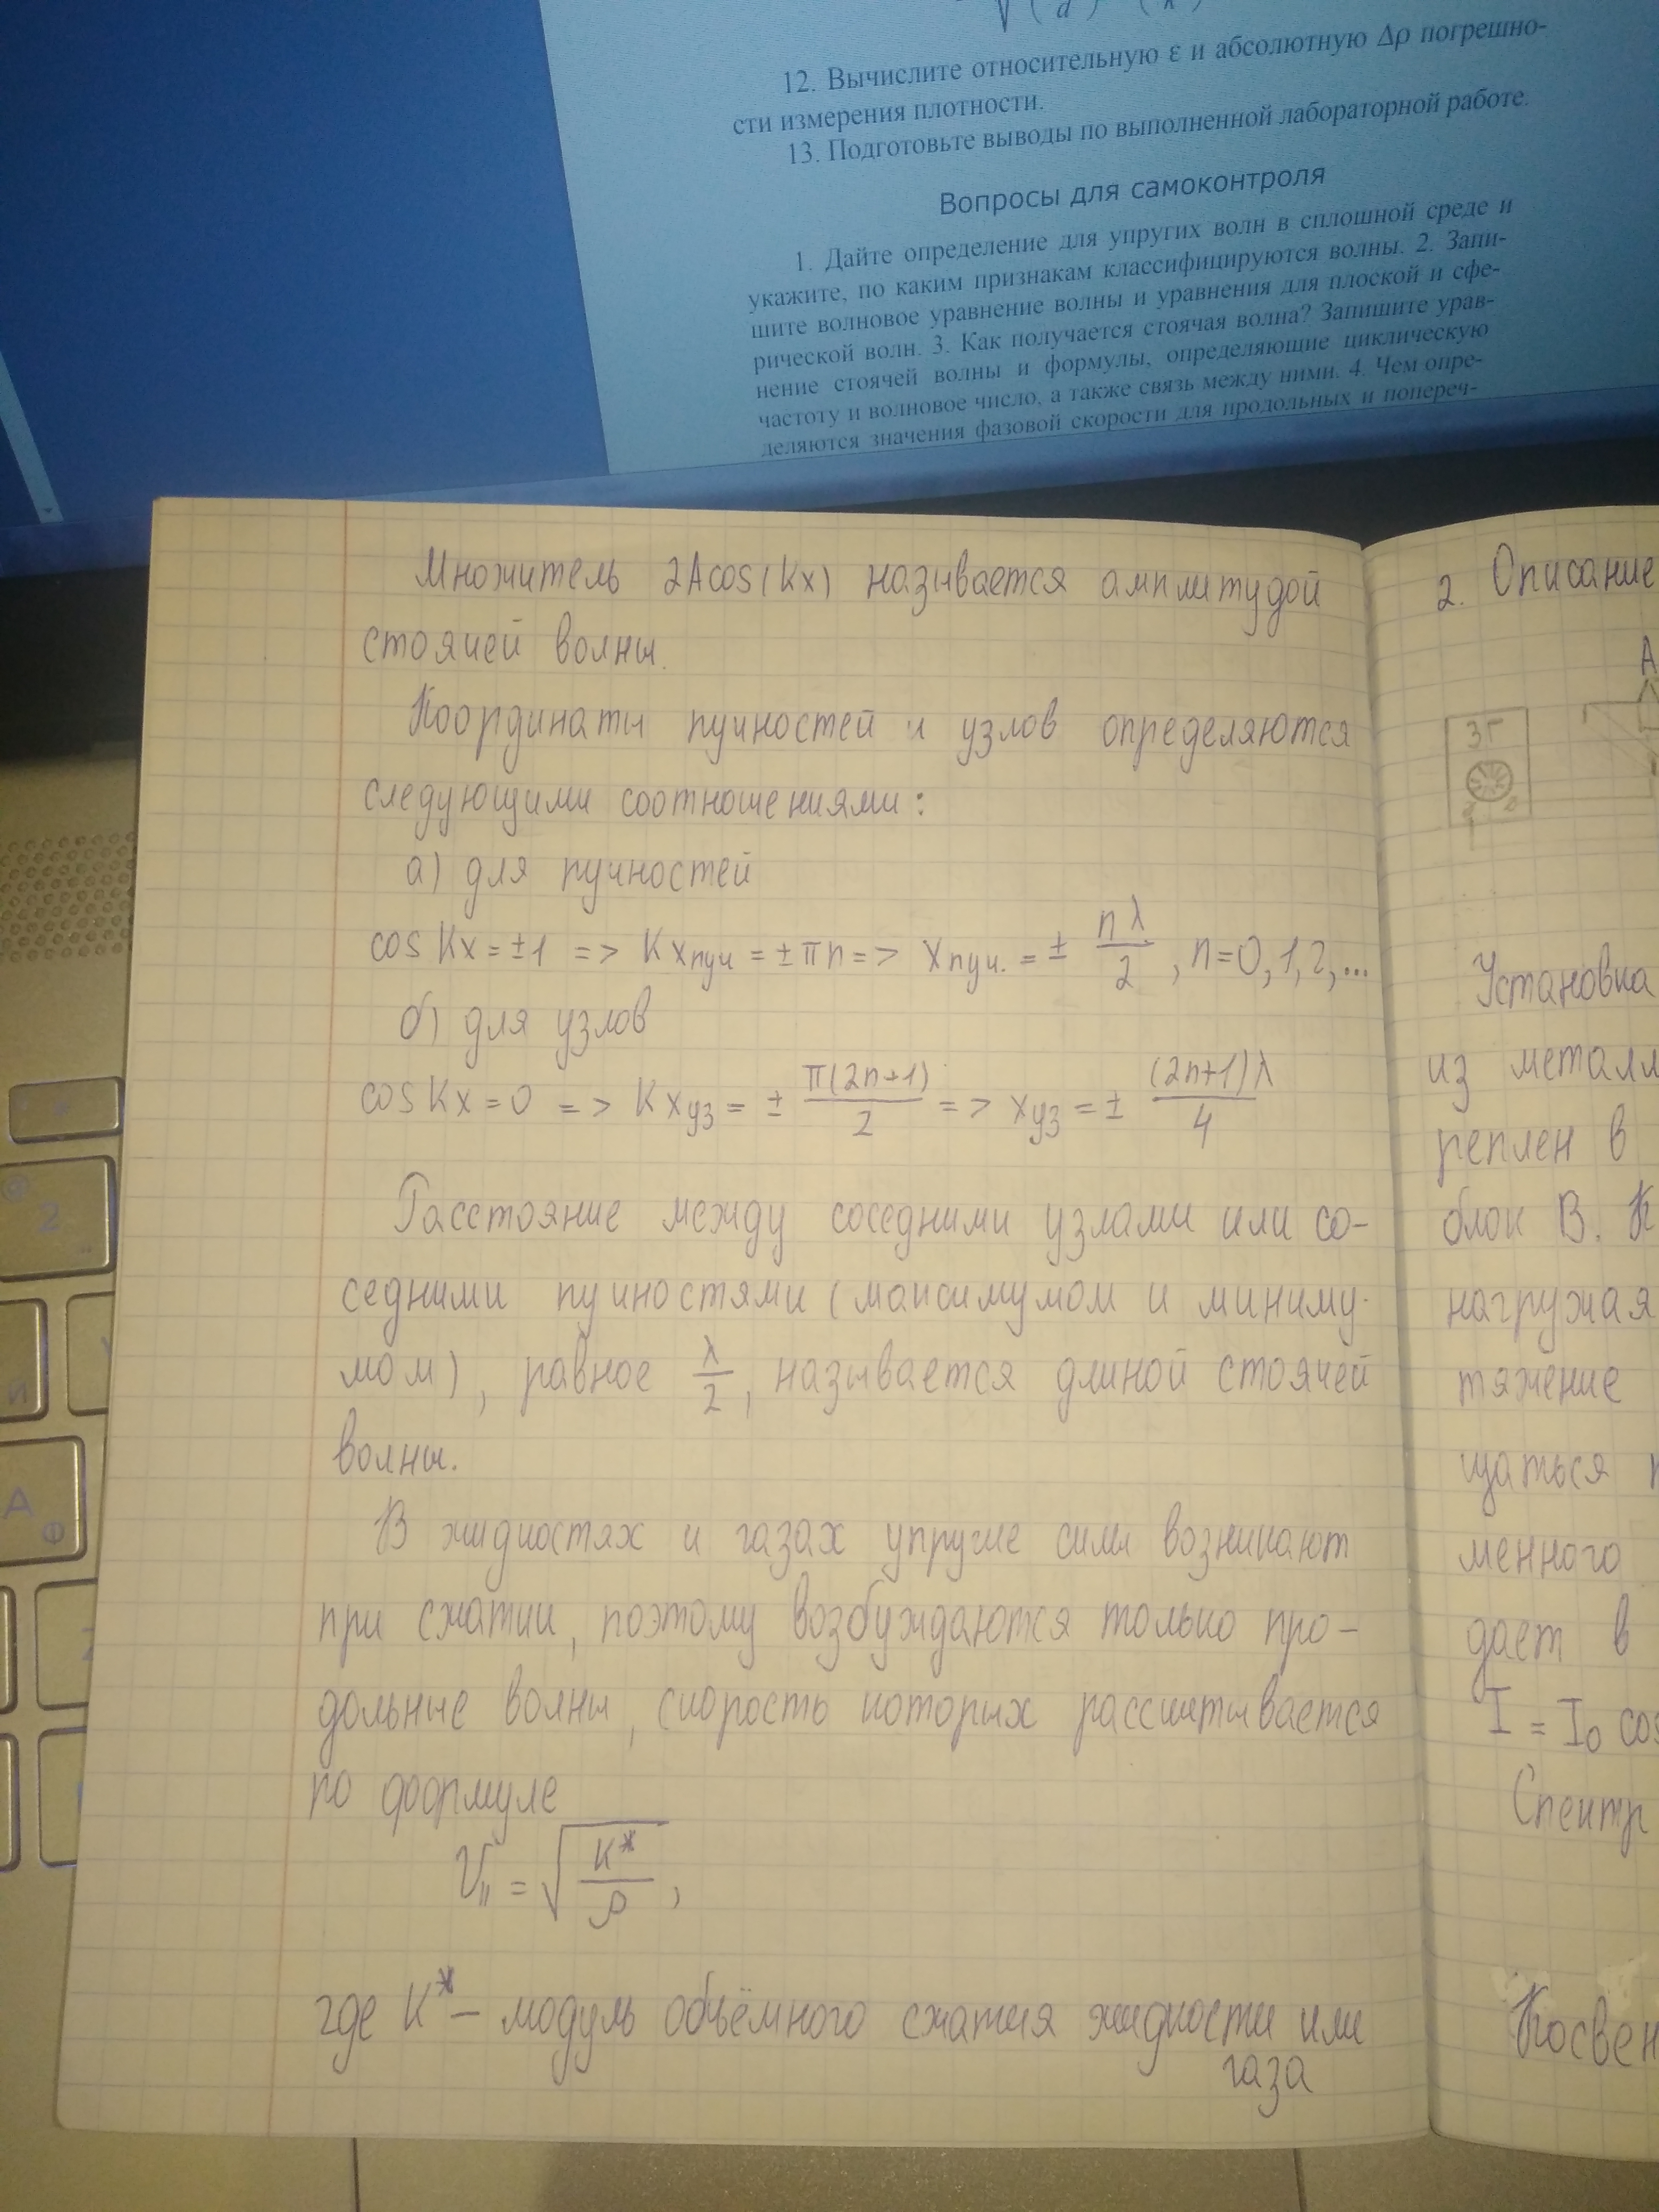 12. Вычислите относительную ε и абсолютную Δρ погрешно-
сти измерения плотности.
13. Подготовьте выводы по выполненной лабораторной работе.
Вопросы для самоконтроля
1. Дайте определение для упругих волн в сплошной среде и
укажите, по каким признакам классифицируются волны. 2. Запи-
шите волновое уравнение волны и уравнения для плоской и сфе-
рической волн. 3. Как получается стоячая волна? Запишите урав-
нение стоячей волны и формулы, определяющие циклическую
частоту и волновое число, а также связь между ними. 4. Чем опре-
деляются значения фазовой скорости для продольных и попереч-
Множитель 2Acos(Kx) называется амплитудой
стоячей волны.
Координаты пучностей и узлов определяются
следующими соотношениями:
а) для пучностей
cos Kx = ±1 => K xпуч = ±πn => xпуч. = ± nλ/2, n=0,1,2,...
б) для узлов
cos Kx = 0 => K xуз = ± π(2n+1)/2 => xуз = ± (2n+1)λ/4
Расстояние между соседними узлами или со-
седними пучностями (максимумом и миниму-
мом), равное λ/2, называется длиной стоячей
волны.
В жидкостях и газах упругие силы возникают
при сжатии, поэтому возбуждаются только про-
дольные волны, скорость которых рассчитывается
по формуле
V∥ = √(K*/ρ),
где K* – модуль объёмного сжатия жидкости или
газа
2. Описание
A
ЗГ
Установка
из металл
реплен в
блок В. К
нагружая
тяжение
щаться
менного
дает в
I = I₀ cos
Спектр
Косвен
2
Й
А
Ф